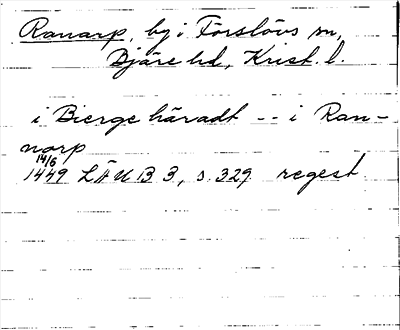 Ranarp, by i Förslövs sn,
Bjäre hd, Krist. l.
i Bierge häradt -- i Ran-
narp
14/6
1449 LÄUB 3, s. 329 regest